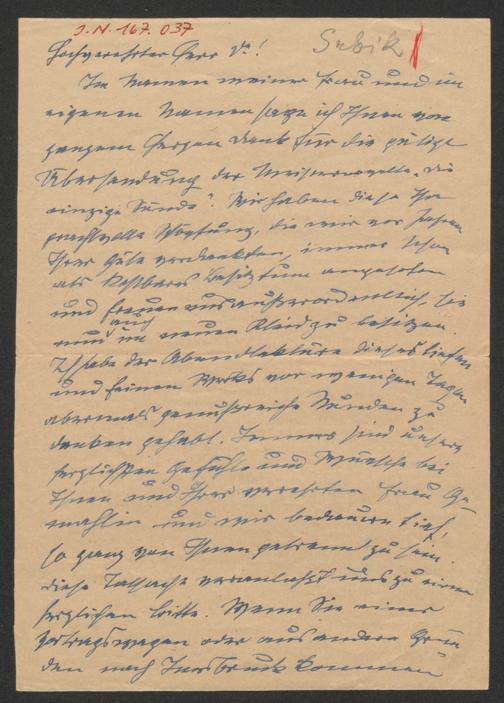 J.N. 167.037
Srbik
Hochverehrter Herr Dr!
Im Namen meiner Frau und im
eigenen Namen sage ich Ihnen von
ganzem Herzen Dank für die gütige
Übersendung der Meisternovelle „Die
einzige Sünde". Wir haben diese Ihre
prachtvolle Dichtung, die wir vor Jahren
Ihrer Güte verdankten, immer schon
als kostbares Besitztum angesehen
und freuen uns außerordentlich, sie
nun auch im neuen Kleid zu besitzen.
Ich habe der Abendlektüre dieses tiefen
und feinen Werks vor wenigen Tagen
abermals genußreiche Stunden zu
danken gehabt. Immer sind unsere
herzlichsten Gefühle und Wünsche bei
Ihnen und Ihrer verehrten Frau Ge-
mahlin und wir bedauern tief,
so ganz von Ihnen getrennt zu sein.
Diese Tatsache veranlaßt uns zu einer
herzlichen Bitte. Wenn Sie einer
Vortragswegen oder aus andern Grün-
den nach Innsbruck kommen